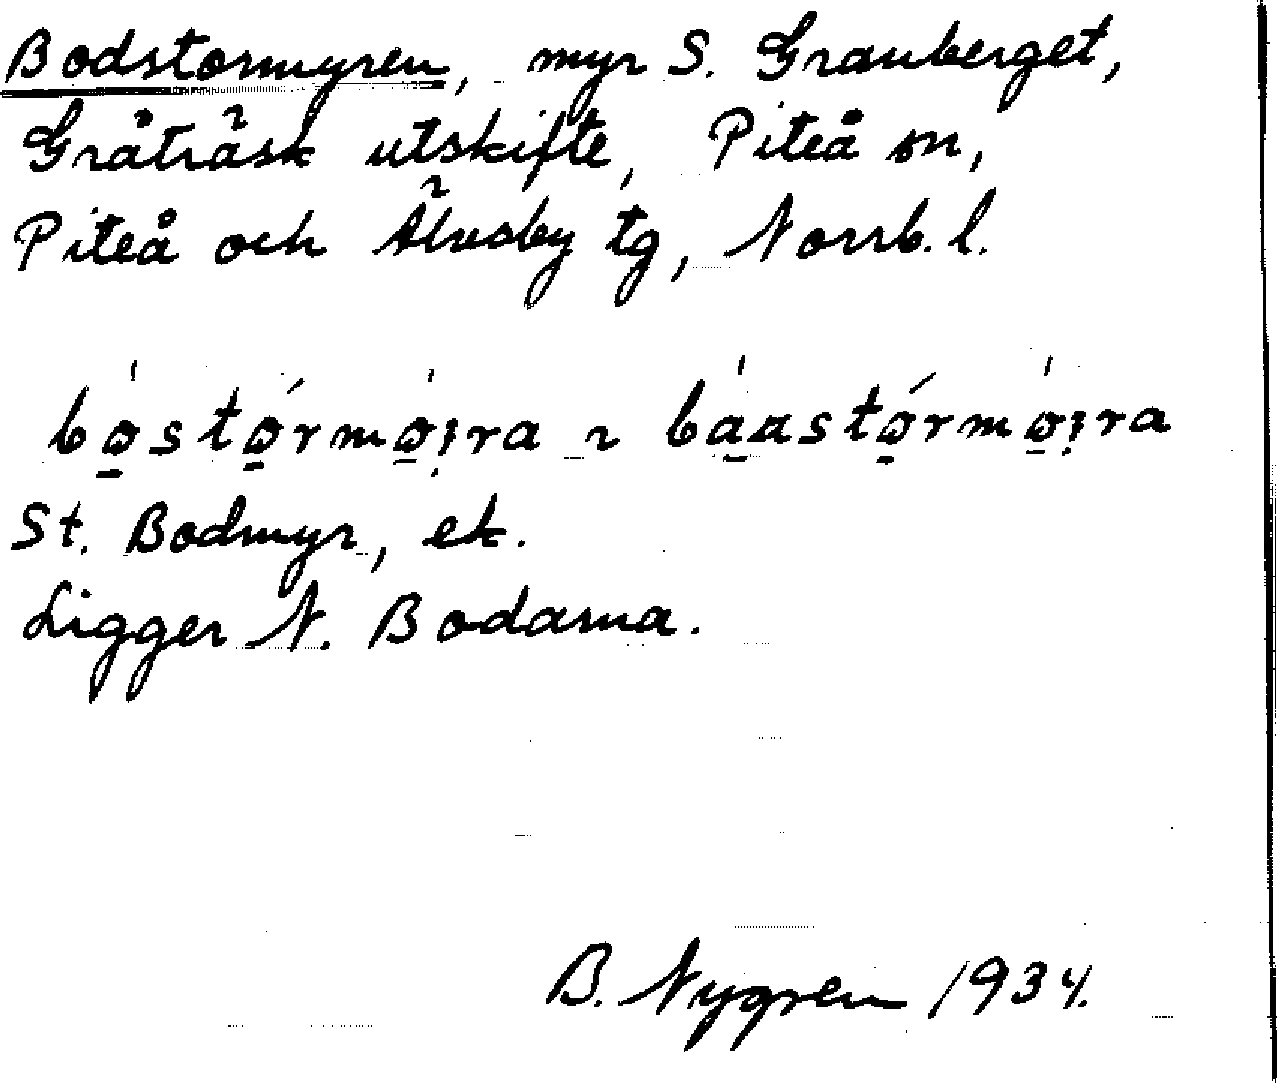 Bodstormyren, myr S. Granberget,
Gråträsk utskifte, Piteå sn,
Piteå och Älvsby tg, Norrb. l.
bo̱stø̱rmø̱i̯ra ~ bo̱a̱stø̱rmø̱i̯ra
St. Bodmyr, ek.
Ligger N. Bodarna.
B. Nygren 1934.